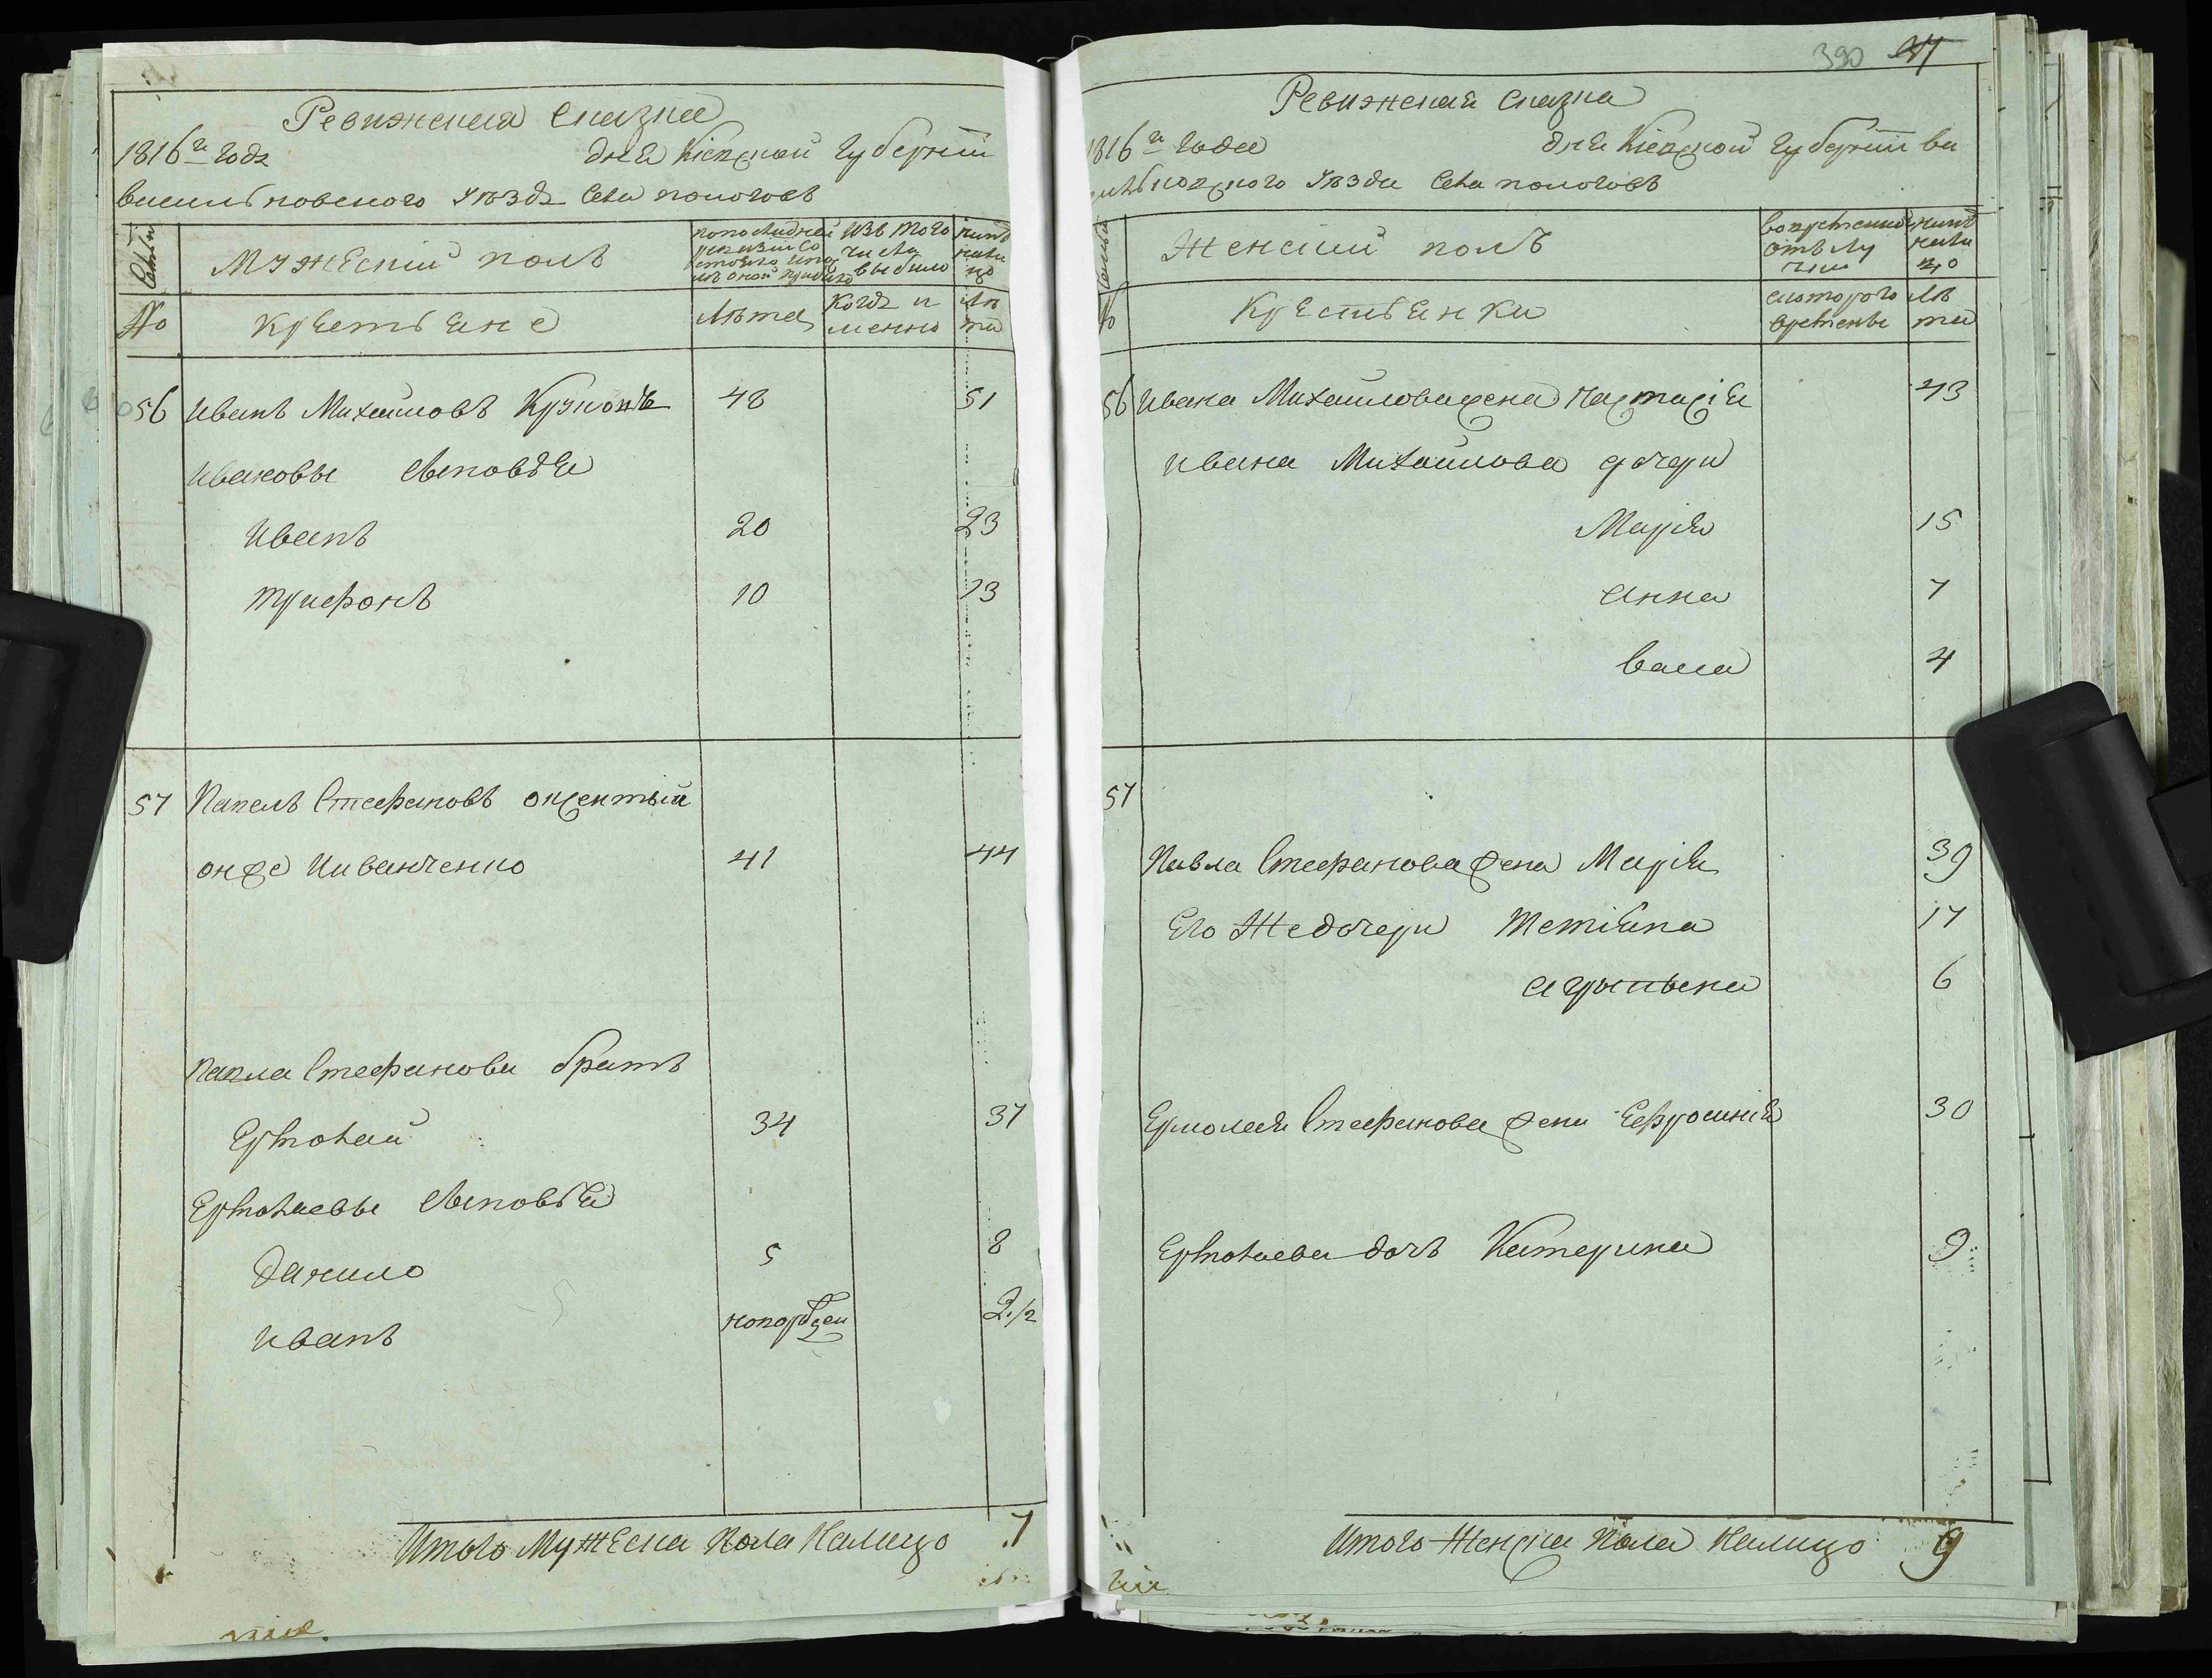 Ревизская сказка
1816го года дня Кіевской губерніи
васильковского уѣзда села пологовъ
Семьи
Мужескій полъ
по последней ревизіи состояло и после оной прибыло
изъ того числа выбыло
нынѣ на лицо
№
крестьяне
лѣта
когда именно
лѣта
56 Иванъ Михайловъ 48 51
Ивановы сыновья
Иванъ 20 23
Трифонъ 10 13
57 Павелъ Стефановъ
онже Иванченко 41 44
Павла Стефанова братъ
Ермолай 34 37
Ермолаевы сыновья
Данило 5 8
Иванъ новорожден 2 1/2
Итого мужеска пола налицо 7
390
Ревизская сказка
1816го года дня Кіевской губерніи ва
сильковского уѣзда села пологовъ
Семьи
Женскій полъ
во временной отлучки
нынѣ налицо
№
Крестьянки
с которого времены
лѣта
56 Ивана Михайлова жена Настасія 43
Ивана Михайлова дочери
Марія 15
Анна 7
4
57
Павла Стефанова жена Марія 39
Его же дочери Тетіяна 17
Агрыпьена 6
Ермолая Стефанова жена Ефросинія 30
Ермолаева дочь Катерина 9
Итого женска пола налицо 9